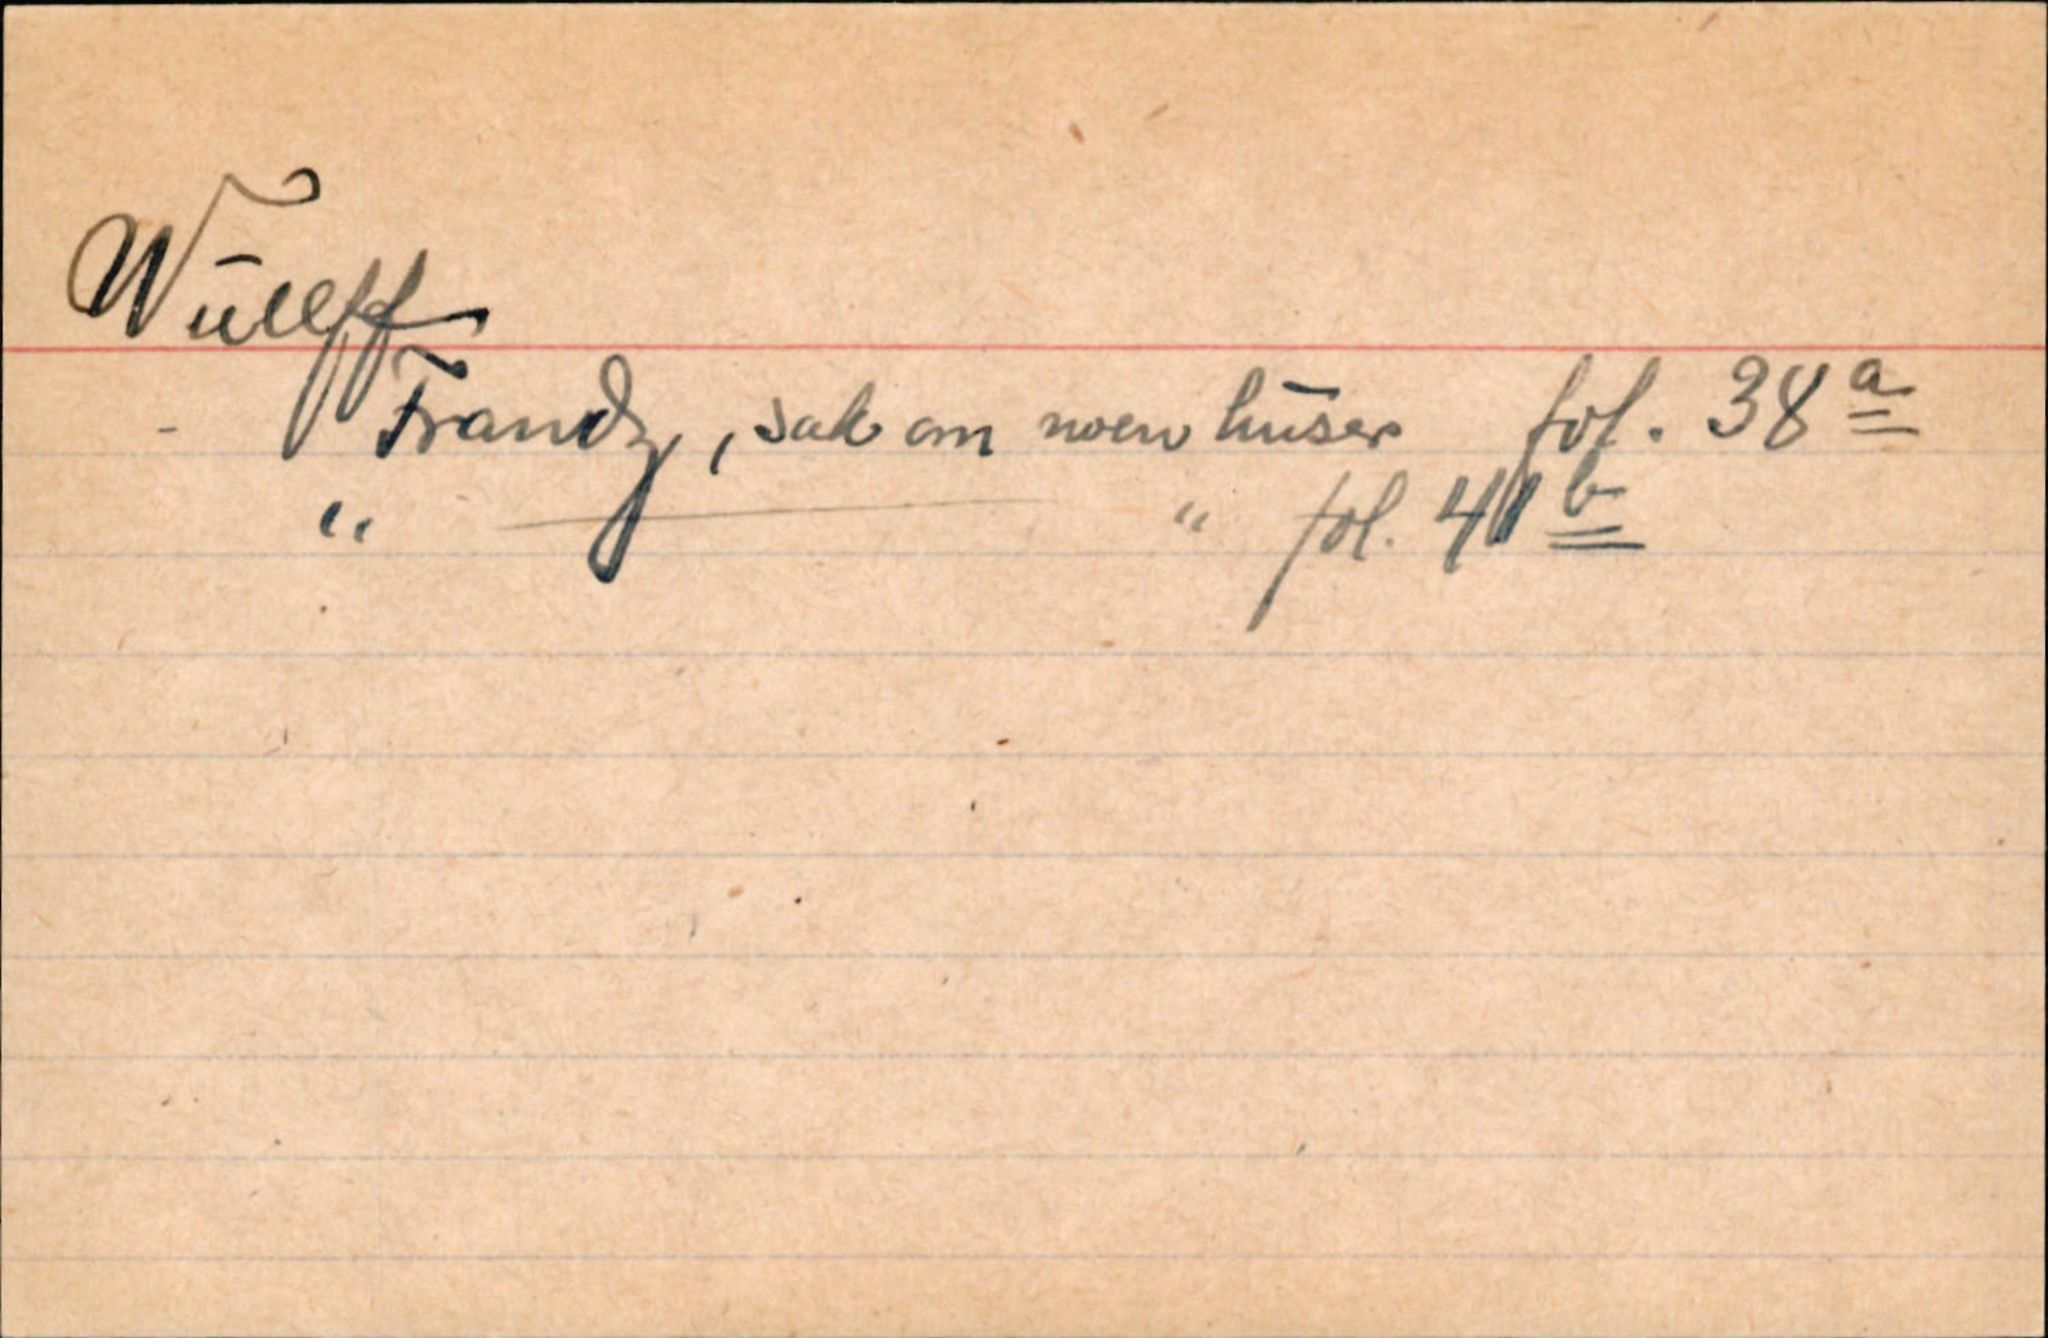 Wullff
- Frandz, sak om noen huser fol. 38a
" — " fol. 41b